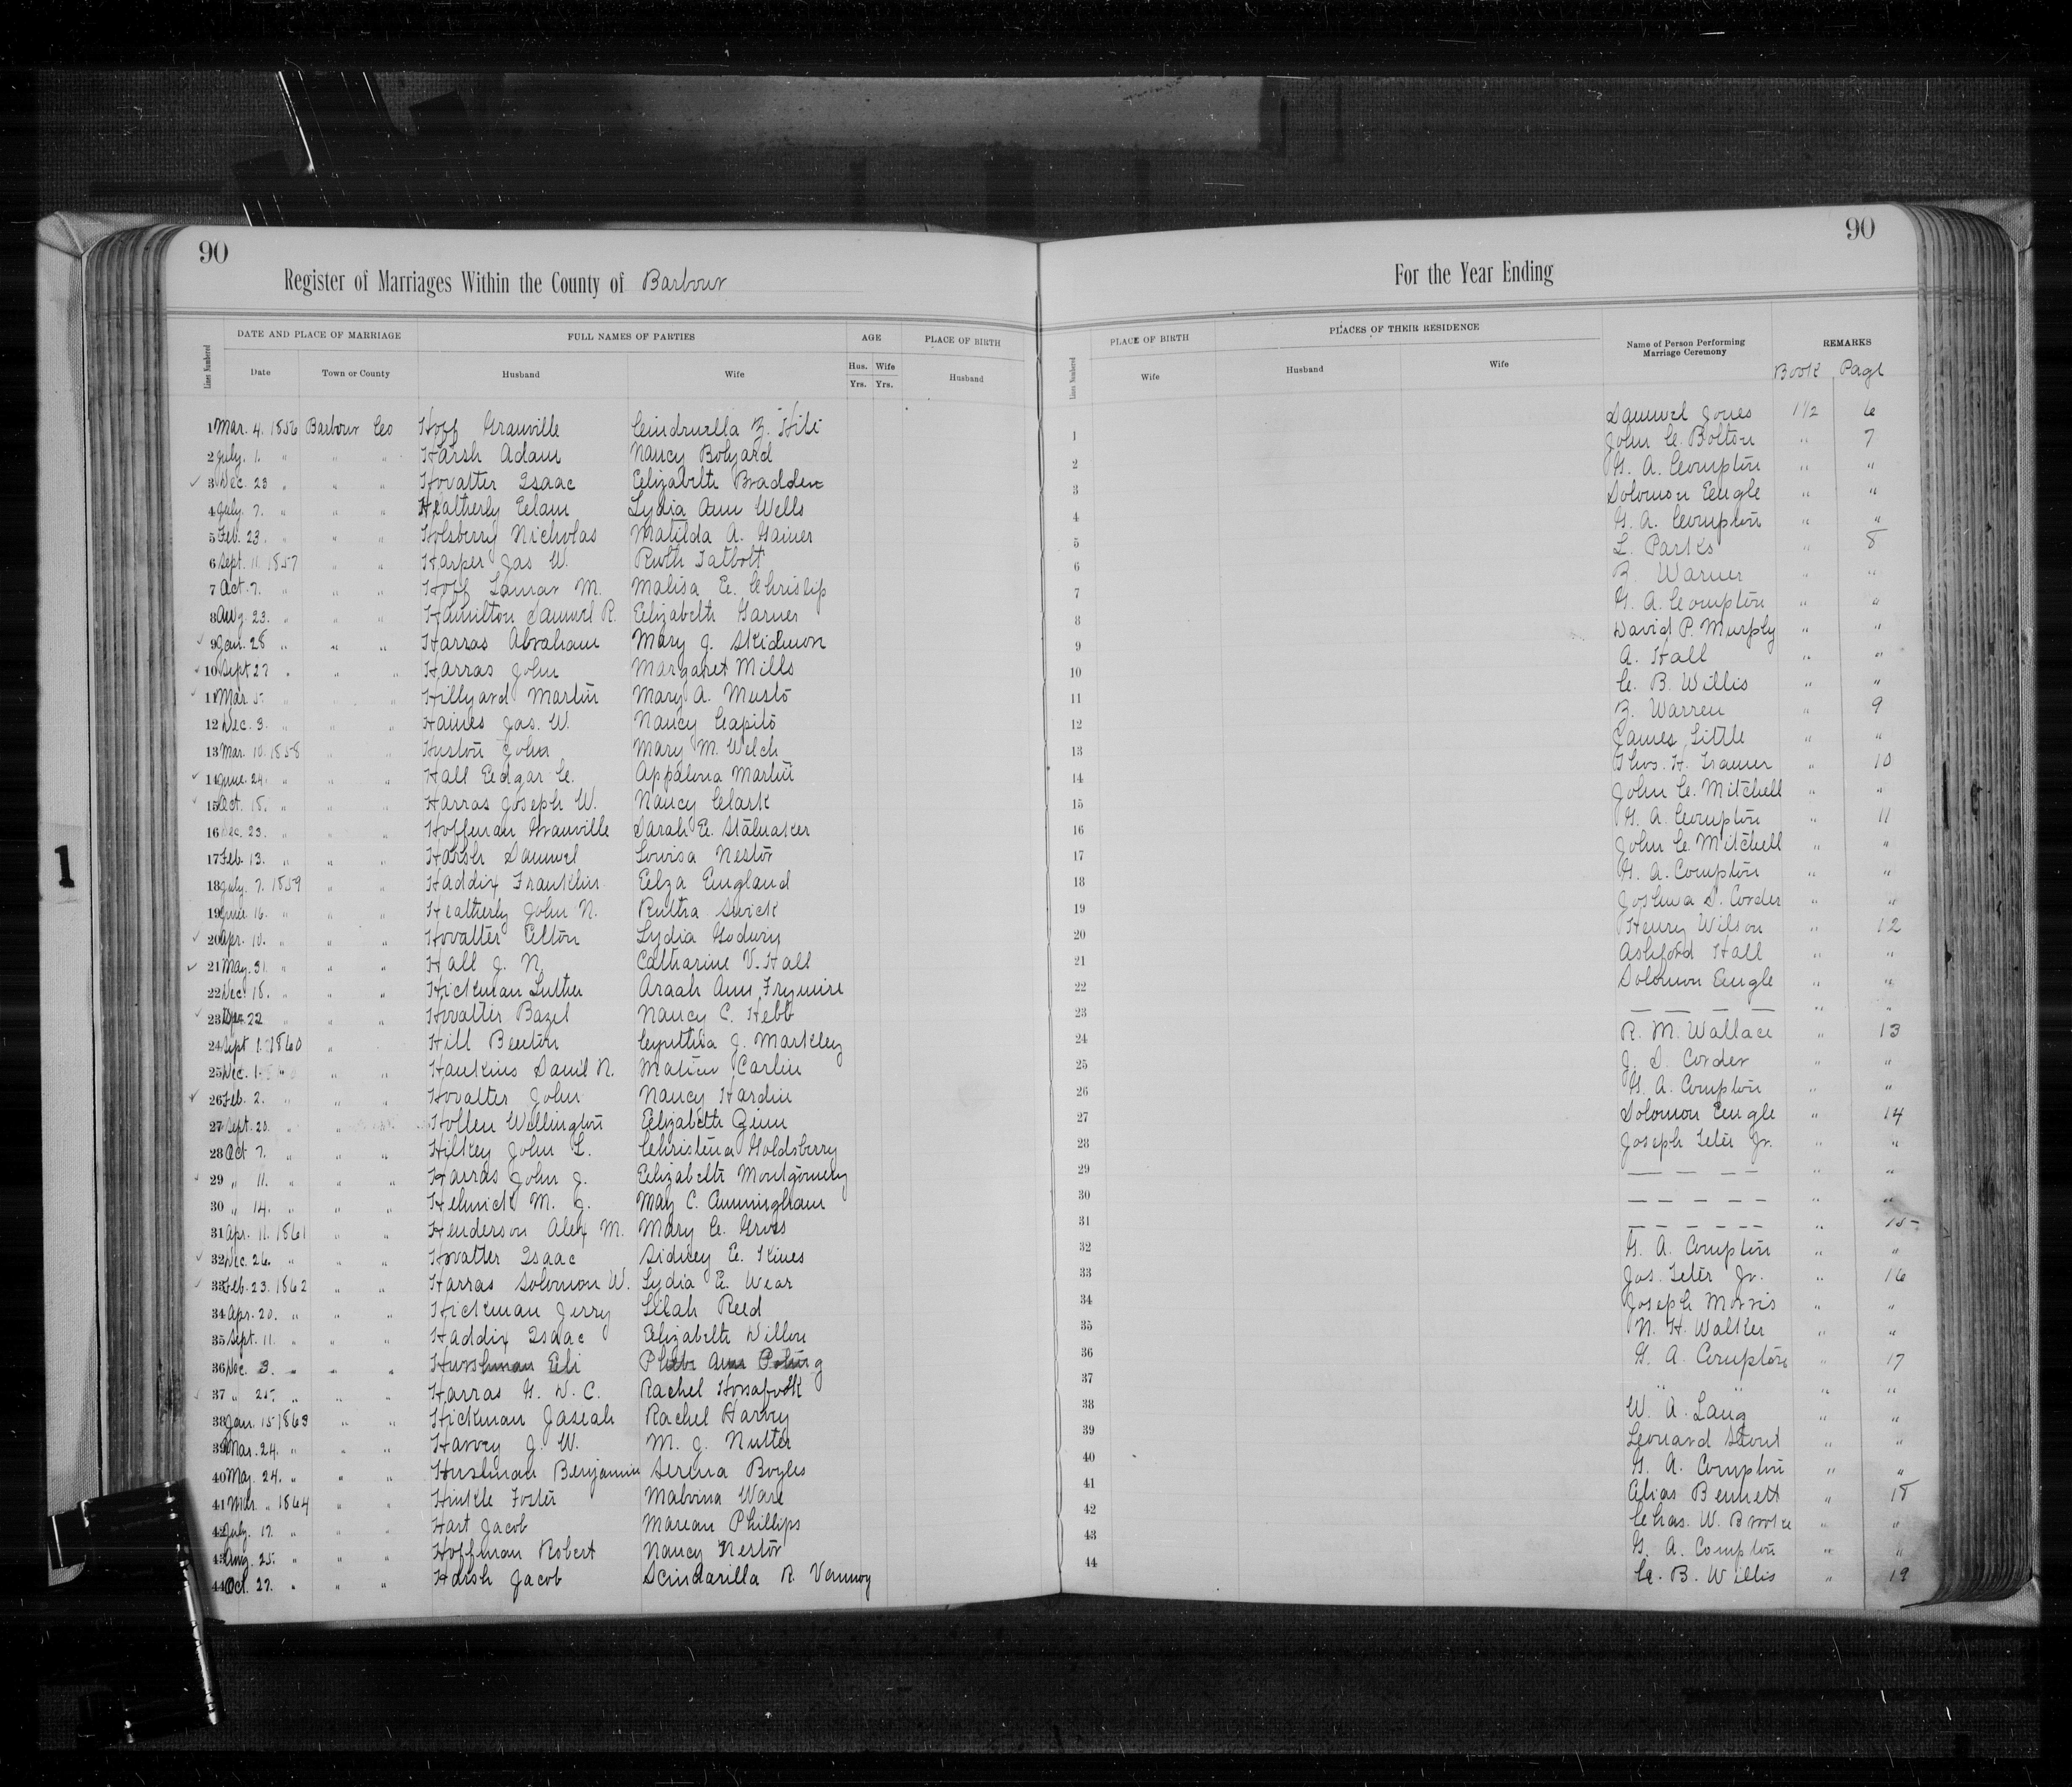 90
90
Register of Marriages Within the County of Barbour
For the Year Ending
Lines Numbered
DATE AND PLACE OF MARRIAGE
FULL NAMES OF PARTIES
AGE
PLACE OF BIRTH
Lines Numbered
PLACE OF BIRTH
PLACES OF THEIR RESIDENCE
Name of Person Performing Marriage Ceremony
REMARKS
Date
Town or County
Husband
Wife
Hus. Wife
Yrs. Yrs.
Husband
Wife
Husband
Wife
Book Page
1 Mar. 4. 1856 Barbour Co Hoff Granville 1 Samuel Jones 1 1/2 6
2 July. 1. " " " Harsh Adam Nancy Bolyard 2 John C. Bolton " 7
3 Dec. 23 " " " Hovatter Isaac Elizabeth Bradden 3 G. A. Compton " "
4 July. 7. " " " Heatherly Elam Lydia Ann Wells 4 Solomon Engle " "
5 Feb. 23. " " " Holsberry Nicholas Matilda A. Gainer 5 G. A. Compton " "
6 Sept. 11. 1857 " " Harper Jas W. Ruth Talbott 6 L. Parks " 8
7 Oct. 7. " " " Hoff M. Malisa E. Chrislip 7 Z. Warner " "
8 Aug. 23. " " " Hamilton Samuel R. Elizabeth Garner 8 G. A. Compton " "
9 Jan. 28 " " " Harras Abraham Mary J. Skidmon 9 David P. Murphy " "
10 Sept 27 " " " Harras John Margaret Mills 10 A. Hall " "
11 Mar. 5. " " " Hillyard Martin Mary A. 11 C. B. Willis " "
12 Dec. 3. " " " Haines Jas. W. Nancy Capito 12 Z. Warren " 9
13 Mar. 10. 1858 " " Huston John Mary M. Welch 13 James Little " "
14 June. 24. " " " Hall Edgar C. Appalona Martin 14 Thos. H. Tramer " 10
15 Oct. 15. " " " Harras Joseph W. Nancy Clark 15 John C. Mitchell " "
16 Dec. 23. " " " Hoffman Granville Sarah E. Stalnaker 16 G. A. Compton " 11
17 Feb. 13. " " " Harsh Samuel Louisa Nestor 17 John C. Mitchell " "
18 July. 7. 1859 " " Haddix Franklin Elza England 18 G. A. Compton " "
19 June. 16. " " " Heatherly John N. Rultra Swick 19 Joshua S. Corder " "
20 Apr. 10. " " " Hovatter Elton Lydia Godwin 20 Henry Wilson " 12
21 May. 31. " " " Hall J. N. Catharine V. Hall 21 Ashford Hall " "
22 Dec. 18. " " " Hickman Luther Araah Ann Frymire 22 Solomon Engle " "
23 22 " " " Hovatter Bazel Nancy C. Hebb 23 — — — — " "
24 Sept 1. 1860 " Hill Beeton Cynthia J. Markley 24 R. M. Wallace " 13
25 Dec. 1. " " " Hawkins Danil N. Carlin 25 J. S. Corder " "
26 Feb. 2. " " " Hovatter John Nancy Hardin 26 G. A. Compton " "
27 Sept. 20. " " Hollen Wellington Elizabeth Zinn 27 Solomon Engle " 14
28 Oct 7. " " " Hilkey John L. Christena Goldsberry 28 Joseph Teter Jr. " "
29 " 11. " " " Harras John J. Elizabeth Montgomery 29 — — — — " "
30 " 14. " " " Helmick M. J. May C. Cunningham 30 — — — — — " "
31 Apr. 11. 1861 " " Henderson Alex M. Mary E. Gross 31 — — — — — " 15
32 Dec. 26. " " " Hovatter Isaac Sidney E. Kines 32 G. A. Compton " "
33 Feb. 23. 1862 " " Harras Solomon W. Lydia E. Wear 33 Jos. Teter Jr. " 16
34 Apr. 20. " " " Hickman Jerry Lilah Reed 34 Joseph Morris " "
35 Sept. 11. " " " Haddix Isaac Elizabeth Dillon 35 N. H. Walker " "
36 Dec. 3. " " " Hurshman Eli 36 G. A. Compton " 17
37 " 25. " " " Harras G. D. C. Rachel 37 " " " "
38 Jan. 15 1863 " " Hickman Jaseah Rachel Harvey 38 W. A. Lang " "
39 Mar. 24. " " " Harvey J. W. M. J. Nutter 39 Leonard Stout " "
40 May. 24. " " " Hurshman Benjamin Serena Boyles 40 G. A. Compton " "
41 Mar. " 1864 " " Hinkle Foster Malvina Ware 41 Elias Bennett " 18
42 July. 17. " " " Hart Jacob Marean Phillips 42 Chas. W. Brooke " "
43 Aug. 25. " " " Hoffman Robert Nancy Nestor 43 G. A. Compton " "
44 Oct. 27. " " " Harsh Jacob Scindarilla R. Vannoy 44 C. B. Willis " 19
1